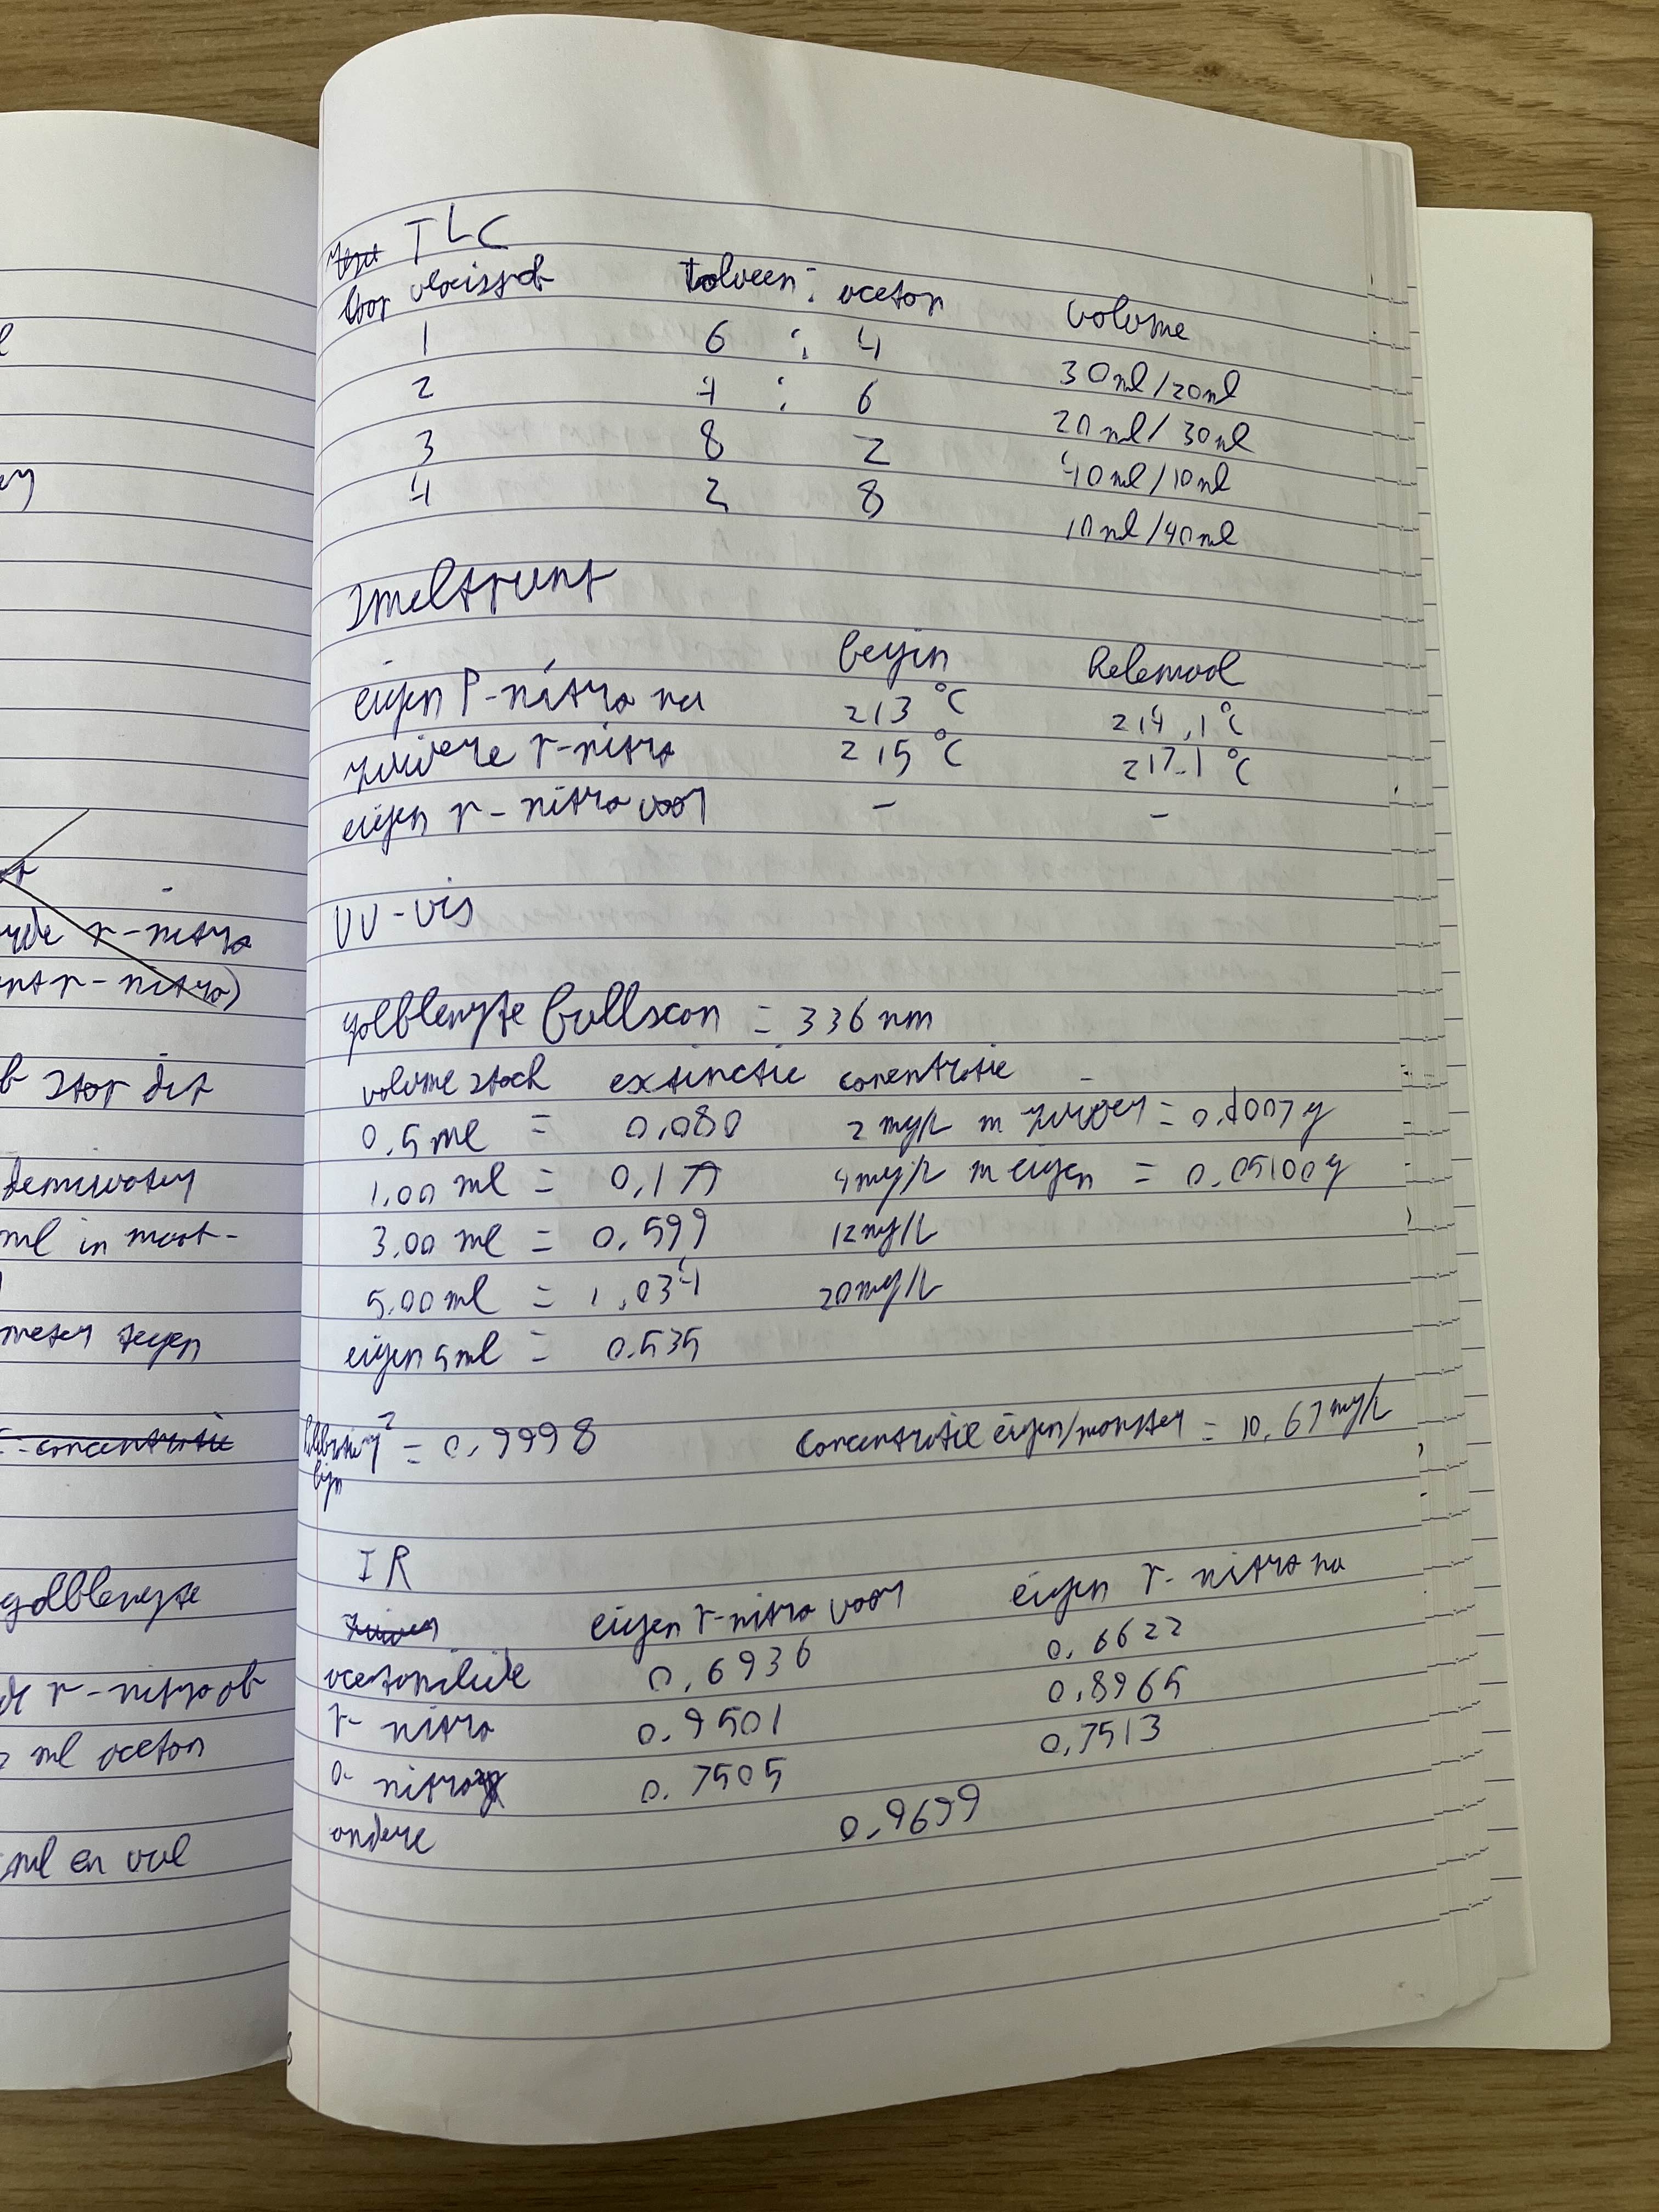 l
ey
yde p-nitro
nt p-nitro)
stop dit
demiwater
ml in maat-
meter tegen
concentratie
golflengte
de p-nitro of
ml aceton
ml en vul
TLC
loop vloeistof tolueen : aceton volume
1 6 : 4 30ml/20ml
2 4 : 6 20ml/30ml
3 8 2 40ml/10ml
4 2 8 10ml/40ml
Smeltpunt
begin helemaal
eigen P-nitro na 213 °C 214,1 °C
zuivere p-nitro 215 °C 217.1 °C
eigen p-nitro voor - -
UV-vis
golflengte fullscan = 336 nm
volume stock extinctie conentratie
0,5 ml = 0,080 2 mg/L m zuiver = 0,1007 g
1,00 ml = 0,177 4mg/L m eigen = 0,05100 g
3,00 ml = 0,599 12mg/L
5,00 ml = 1,034 20mg/L
eigen 5ml = 0.535
r² = 0,9998 concentratie eigen/monster = 10,67 mg/L
lijn
IR
zuiver eigen p-nitro voor eigen p-nitro na
acetanilide 0,6936 0,6622
p-nitro 0,9501 0,8965
o-nitro 0,7505 0,7513
andere 0,9699